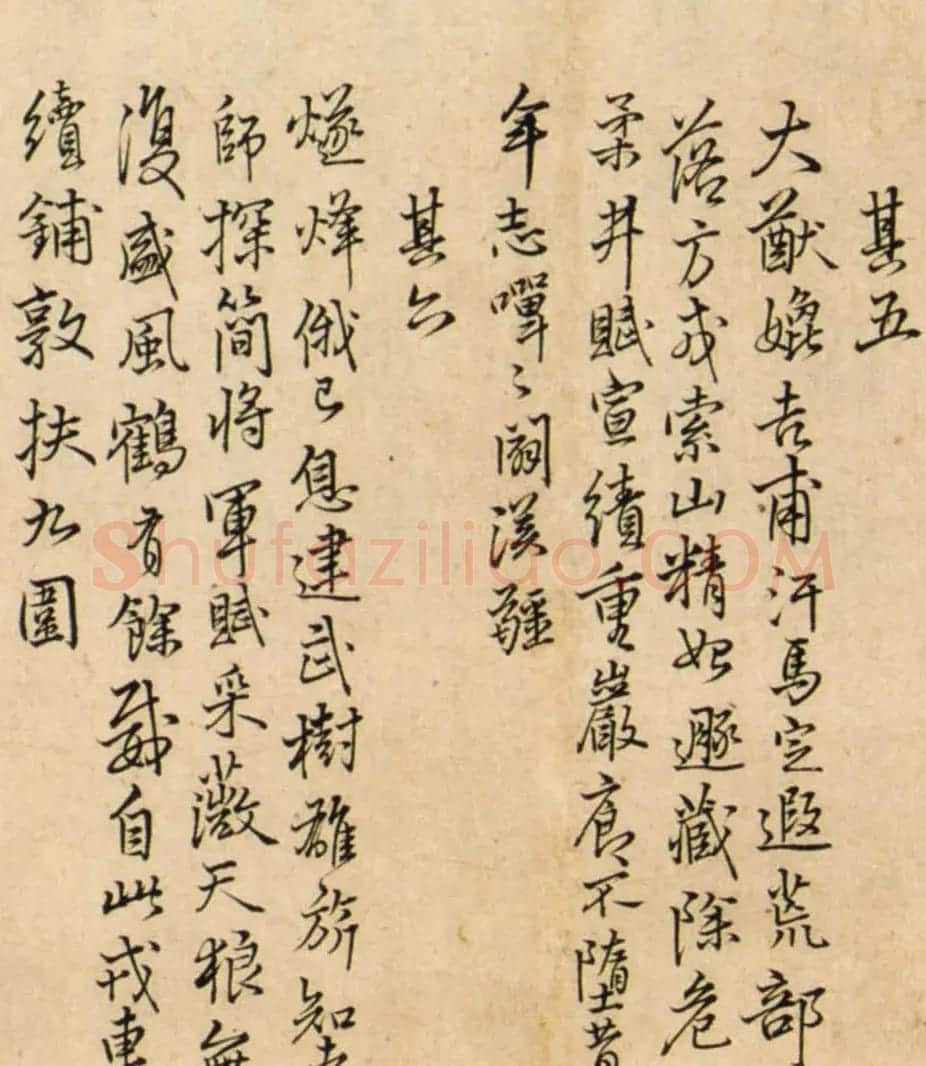 其五
大猷媲吉甫汗馬定遐荒部
落方戎索山精始遯藏除危
柔井賦宣績重巖廊不墮昔
年志嘽〻闢漢疆
其六
燧烽俄已息建武樹雄旂知
師探簡將軍賦采薇天狼無
復盛風鶴有餘威自此戎車
續鋪敦扶九圍
Shufaziliao.COM